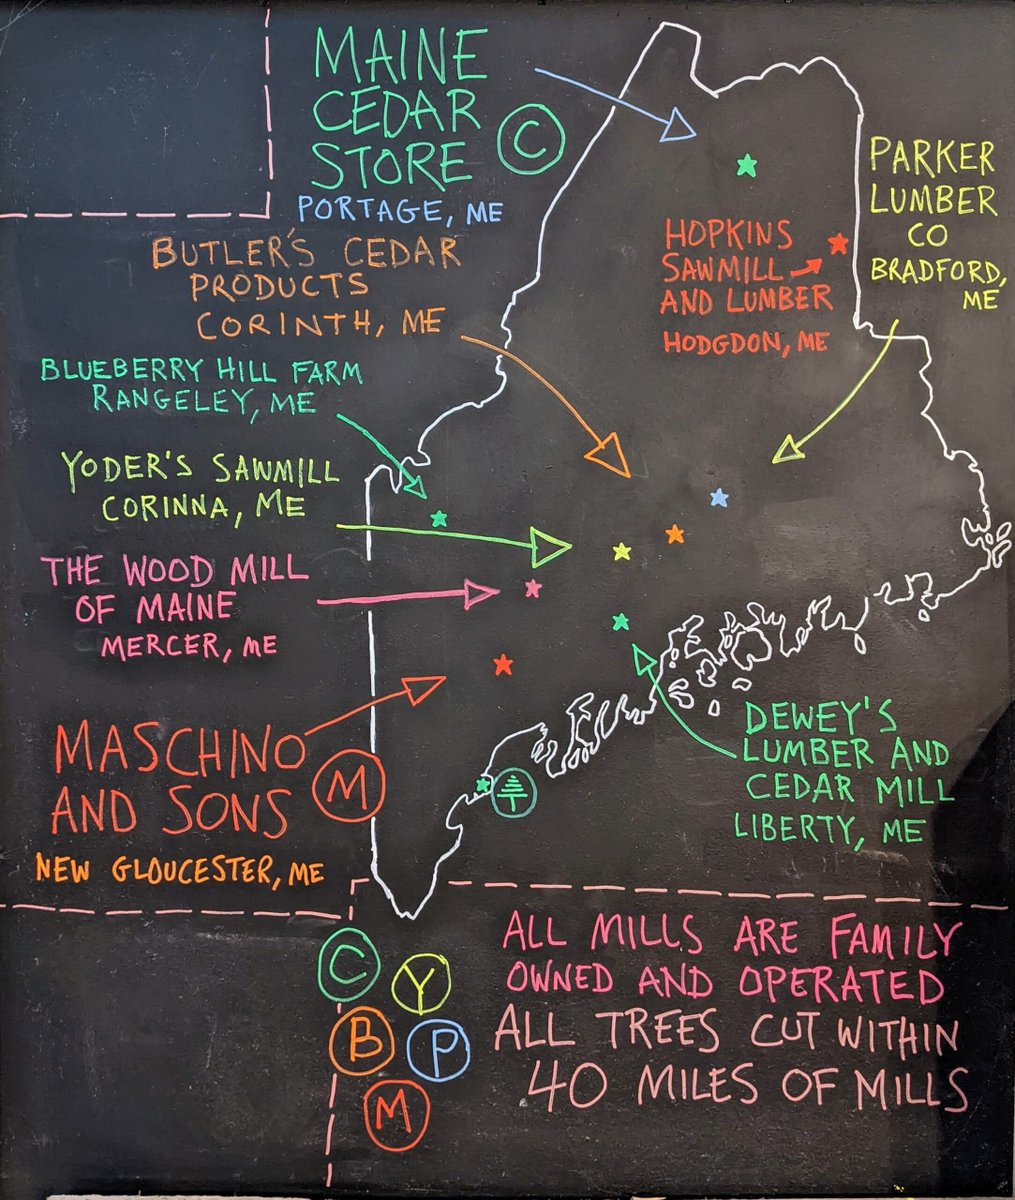 MAINE
CEDAR
STORE
C
PORTAGE, ME
BUTLER'S CEDAR
PRODUCTS
CORINTH, ME
BLUEBERRY HILL FARM
RANGELEY, ME
YODER'S SAWMILL
CORINNA, ME
THE WOOD MILL
OF MAINE
MERCER, ME
MASCHINO
AND SONS
M
NEW GLOUCESTER, ME
PARKER
LUMBER
CO
BRADFORD,
ME
HOPKINS
SAWMILL
AND LUMBER
HODGDON, ME
DEWEY'S
LUMBER AND
CEDAR MILL
LIBERTY, ME
C
Y
B
P
M
ALL MILLS ARE FAMILY
OWNED AND OPERATED
ALL TREES CUT WITHIN
40 MILES OF MILLS